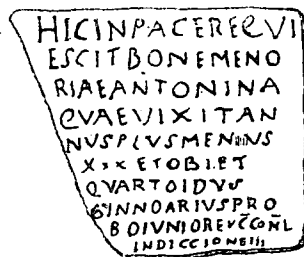 HICINPACEREQVI
ESCITBONEMEMO
RIAEANTONINA
QVAEVIXITAN
NVSPLVSMENVNS
XXXETOBIET
QVARTOIDVS
INNOARIVSPRO
BOIVNIOREVC̄CONL
INDICCIONEIII